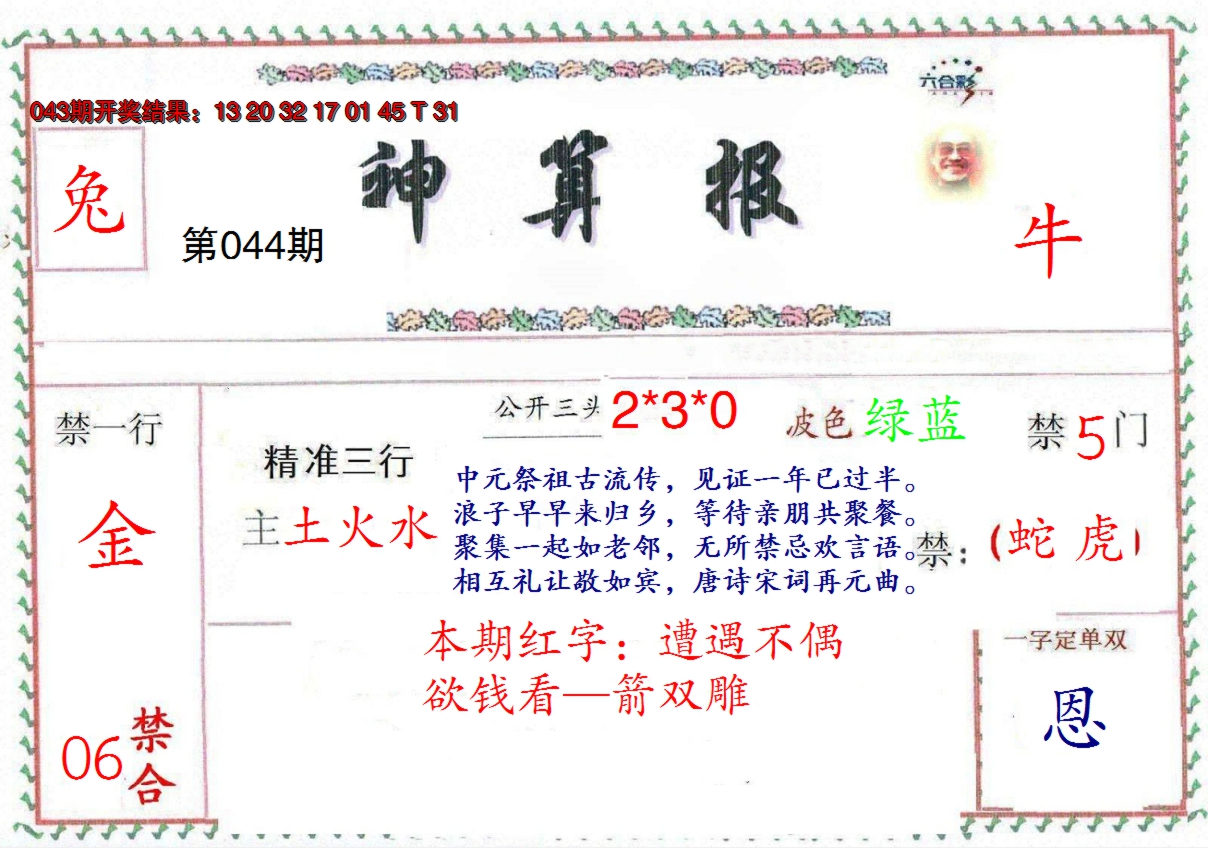 六合彩
043期开奖结果：13 20 32 17 01 45 T 31
神算报
兔
第044期
牛
禁一行
金
06
禁合
精准三行
主土火水
公开三头 2*3*0
波色 绿蓝
禁5门
中元祭祖古流传，见证一年已过半。
浪子早早来归乡，等待亲朋共聚餐。
聚集一起如老邻，无所禁忌欢言语。
相互礼让敬如宾，唐诗宋词再元曲。
禁：(蛇 虎)
本期红字：遭遇不偶
欲钱看—箭双雕
一字定单双
恩